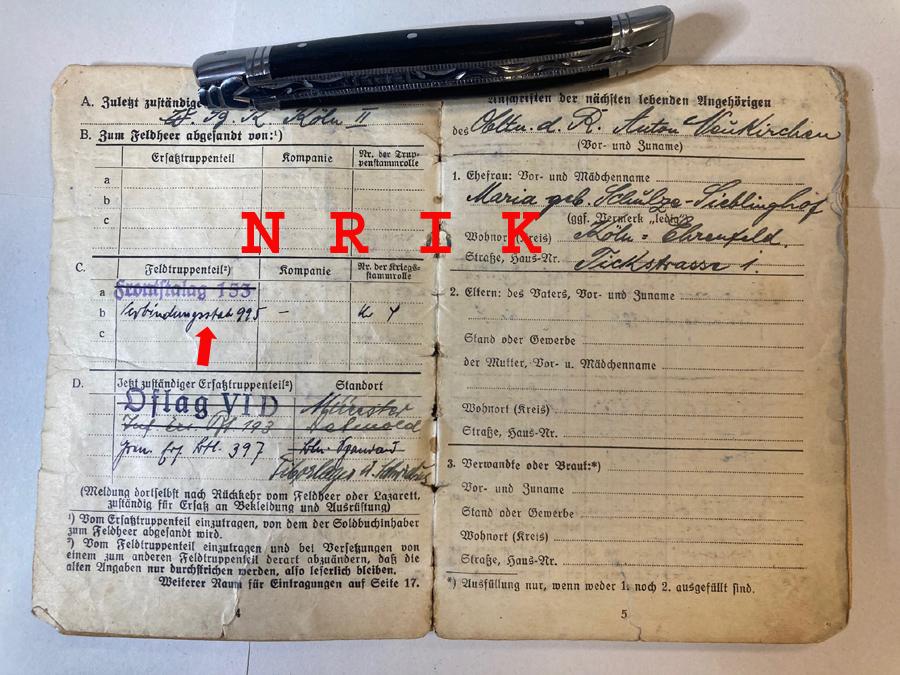 A. Zuletzt zuständige
Köln II
B. Zum Feldheer abgesandt von:¹)
Ersatztruppenteil Kompanie Nr. der Trup-
penstammrolle
a
b
c
N R I K
C. Feldtruppenteil²) Kompanie Nr. der Kriegs-
stammrolle
a Frontstalag 153
b Verbindungsstab 995 –
c
D. Jetzt zuständiger Ersatztruppenteil²) Standort
Oflag VI D Münster
193 Detmold
Gren. Ers. Btl. 397
(Meldung dortselbst nach Rückkehr vom Feldheer oder Lazarett,
zuständig für Ersatz an Bekleidung und Ausrüstung)
¹) Vom Ersatztruppenteil einzutragen, von dem der Soldbuchinhaber
zum Feldheer abgesandt wird.
²) Vom Feldtruppenteil einzutragen und bei Versetzungen von
einem zum anderen Feldtruppenteil derart abzuändern, daß die
alten Angaben nur durchstrichen werden, also leserlich bleiben.
Weiterer Raum für Eintragungen auf Seite 17.
4
Anschriften der nächsten lebenden Angehörigen
des Obltn. d. R. Anton Neukirchen
(Vor- und Zuname)
1. Ehefrau: Vor- und Mädchenname
Maria geb. Schulze-Sieblinghof
(ggf. Vermerk „ledig")
Wohnort (Kreis) Köln = Ehrenfeld.
Straße, Haus-Nr. Tickstrasse 1.
2. Eltern: des Vaters, Vor- und Zuname
Stand oder Gewerbe
der Mutter, Vor- u. Mädchenname
Wohnort (Kreis)
Straße, Haus-Nr.
3. Verwandte oder Braut:*)
Vor- und Zuname
Stand oder Gewerbe
Wohnort (Kreis)
Straße, Haus-Nr.
*) Ausfüllung nur, wenn weder 1. noch 2. ausgefüllt sind.
5